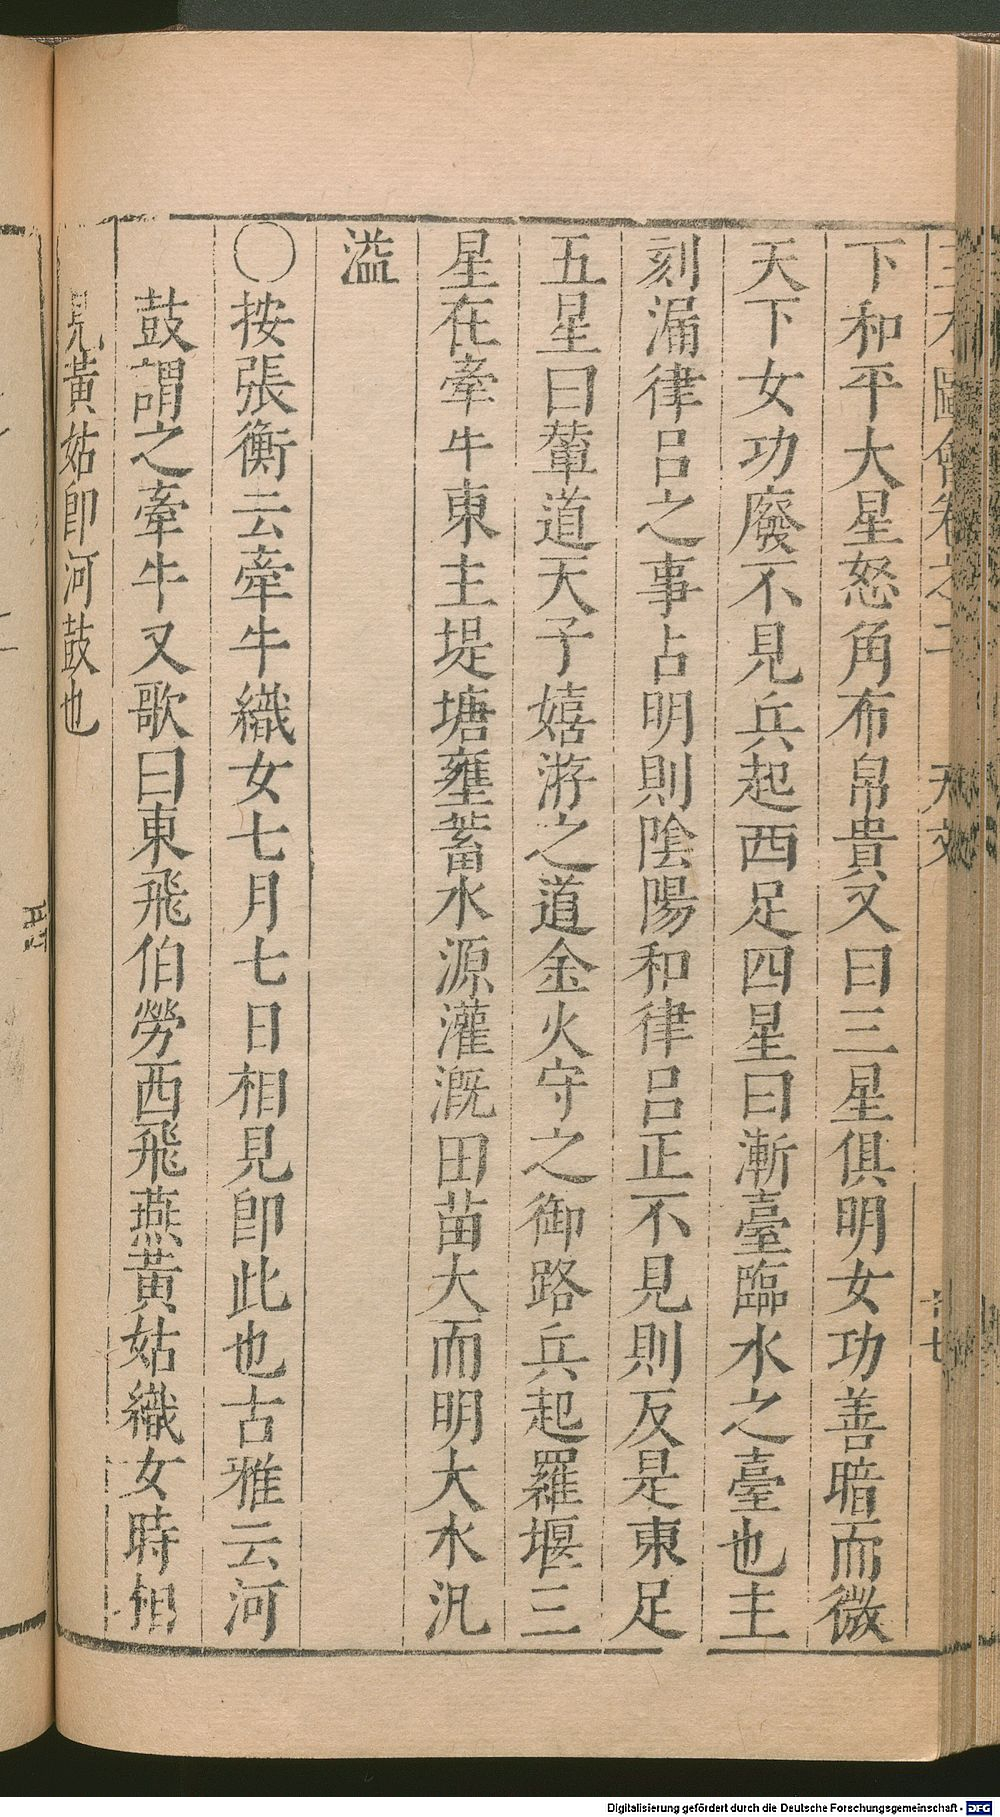 三才圖會卷之二　天文　十七
下和平大星怒角布帛貴又曰三星俱明女功善暗而微
天下女功廢不見兵起西足四星曰漸臺臨水之臺也主
刻漏律呂之事占明則陰陽和律呂正不見則反是東足
五星曰輦道天子嬉游之道金火守之御路兵起羅堰三
星在牽牛東主堤塘壅蓄水源灌溉田苗大而明大水汎
溢
〇按張衡云牽牛織女七月七日相見卽此也古雅云河
鼓謂之牽牛又歌曰東飛伯勞西飛燕黃姑織女時相
見黃姑卽河鼓也
Digitalisierung gefördert durch die Deutsche Forschungsgemeinschaft - DFG